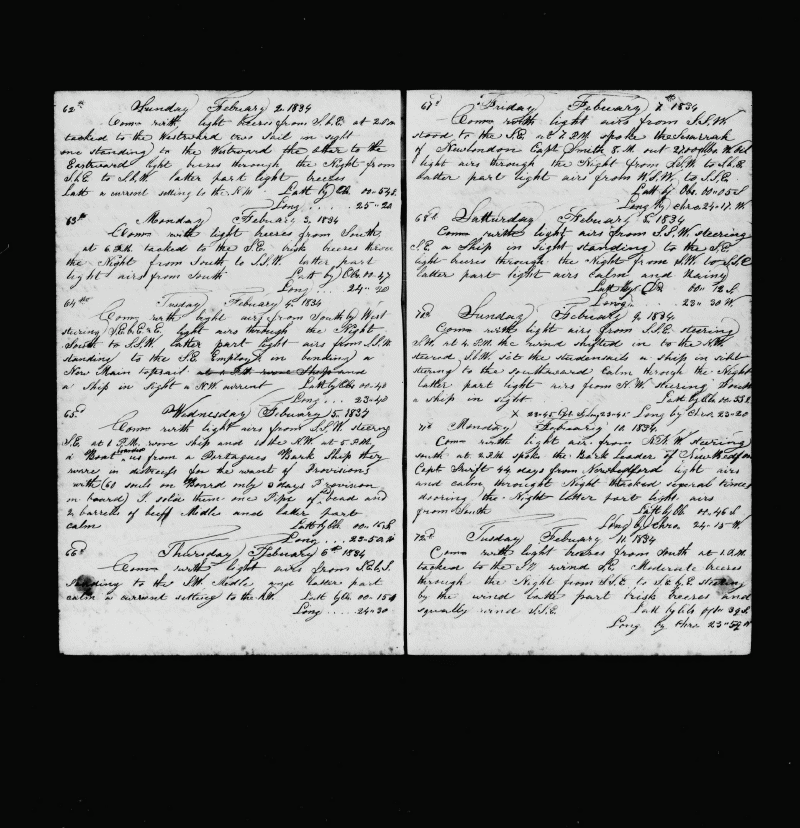 62th Sunday Febuary 2 1834
Coms with light breeses from S.b.E. at 2 P.M
tacked to the Westward two Sail in sight
one standing to the Westward the other to the
Eastward light breeses through the Night from
S.b.E to S.b.W. latter part light breeses
Latt a current setting to the N.W. Latt by Obs 00-54 S.
Long .... 25-20
63th Monday Febuary 3, 1834
Coms with light breeses from South
at 6 P.M. tacked to the S.E. brisk breeses threw
the Night from South to S.S.W. latter part
light airs from South Latt by Obs 00-47
Long .... 24-30
64th Tusday Febuary 4, 1834
Coms with light airs from South by West
steering S.E.b.E.&E. light airs through the Night
South to S.S.W. latter part light airs from S.S.W.
standing to the S.E. Employd in bending a
New Main topsail at 6 P.M. wore Ship and
a Ship in Sight a N.W. current Latt by Obs 00-40
Long ... 23-40
65d Wednesday Febuary 5, 1834
Coms with light airs from S.S.W. steering
S.E. at 1 P.M. wore ship and to the N.W. at 5 P.M.
a Boat boarded us from a Portagues Bark Ship they
ware in distress for the want of Provisions
with (60 souls on Board only 3 days Provision
on board) I sold them one Pipe of bead and
2 barrells of beeff Midle and latter part
calm Latt by Ob 00-16 S.
Long ... 23-50 W
66d Thursday Febuary 6th 1834
Coms with light airs from S.E.b.S.
standing to the S.W. Midle and latter part
calm a current setting to the N.W. Latt by Obs 00-15 S
Long .... 24-30
67d Friday Febuary 7th 1834
Coms with light airs from S.S.W
stood to the S.E. at 7 P.M spoke the
of Newlondon Capt Smith 8 M. out 2700 bbls W. Oil
light airs through the Night from S.b.W to S.b.E
latter part light airs from W.S.W. to S.S.E.
Latt by Obs. 00-05 S
Long by Chro. 24-17. W
68d Satturday Febuary 8. 1834
Coms with light airs from S.S.W. steering
S.E. a Ship in Sight standing to the S.E.
light breeses through the Night from S.W. to S.b.E
latter part light airs calm and Rainy
Latt by Ob 00-12 S
Long ... 23-30 W
70d Sunday Febuary 9. 1834
Coms with light airs from S.S.E. steering
S.W. at 4. P.M. the wind shifted in to the N.W.
steered S.b.W. sete the studensails a ship in siht
steering to the southward Calm through the Night
latter part light airs from N.W. steering South
a ship in sight Latt by Obs 00-33 S
X 23-45 Long by Chro. 23-20
71d Monday Febuary 10. 1834
Coms with light air from N.b.W. steering
south at 2 P.M spoke the Bark Leader of New Bedford
Capt Swift 44 days from Newbedford light airs
and calm throught Night thacked several times
dooring the Night latter part light airs
from South Latt by Ob 00-46 S
Long by Chro. 24-15 W
72d Tusday Febuary 11. 1834
Coms with light breeses from South at 1 A.M.
tacked to the S.W. wind S.E. Moderate breeses
through the Night from S.b.E. to S.E.b.E steering
by the wind latter part brisk breeses and
squally wind S.S.E. Latt by Obs 39 S.
Long by Chro 23-54 W